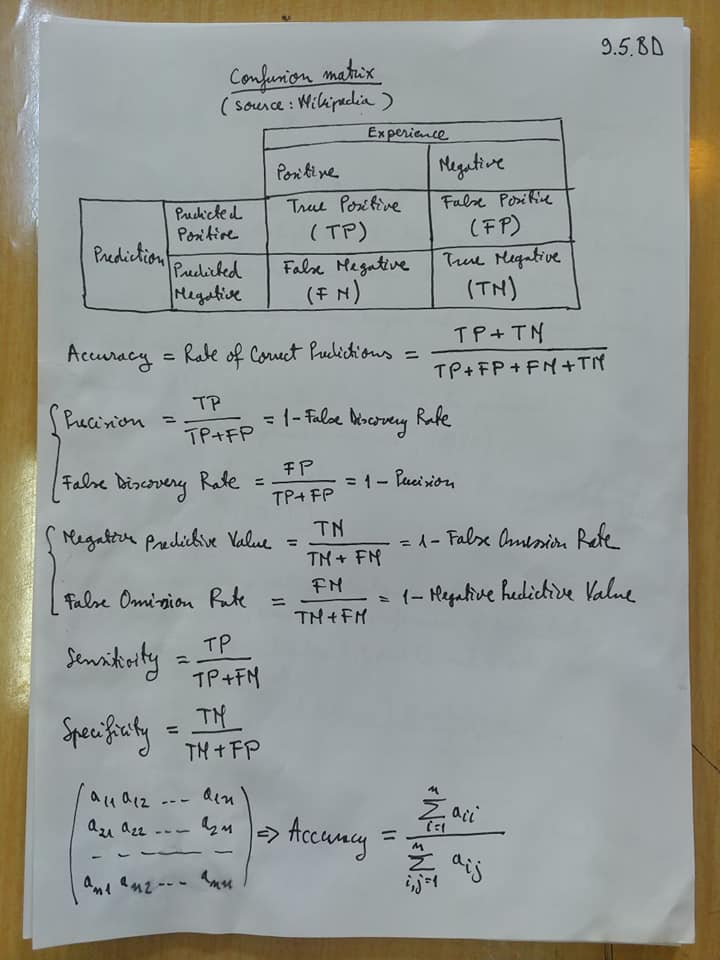 9.5.BD
Confusion matrix
(source: Wikipedia)
Experience
Positive Negative
Prediction Predicted Positive True Positive (TP) False Positive (FP)
Predicted Negative False Negative (FN) True Negative (TN)
Accuracy = Rate of Correct Predictions = (TP + TN) / (TP + FP + FN + TN)
Precision = TP / (TP + FP) = 1 - False Discovery Rate
False Discovery Rate = FP / (TP + FP) = 1 - Precision
Negative Predictive Value = TN / (TN + FN) = 1 - False Omission Rate
False Omission Rate = FN / (TN + FN) = 1 - Negative Predictive Value
Sensitivity = TP / (TP + FN)
Specificity = TN / (TN + FP)
a11 a12 ... a1n
a21 a22 .... a2n
- - - - - -
an1 an2 ... ann
⇒ Accuracy = ∑_{i=1}^{n} aii / ∑_{i,j=1}^{n} aij